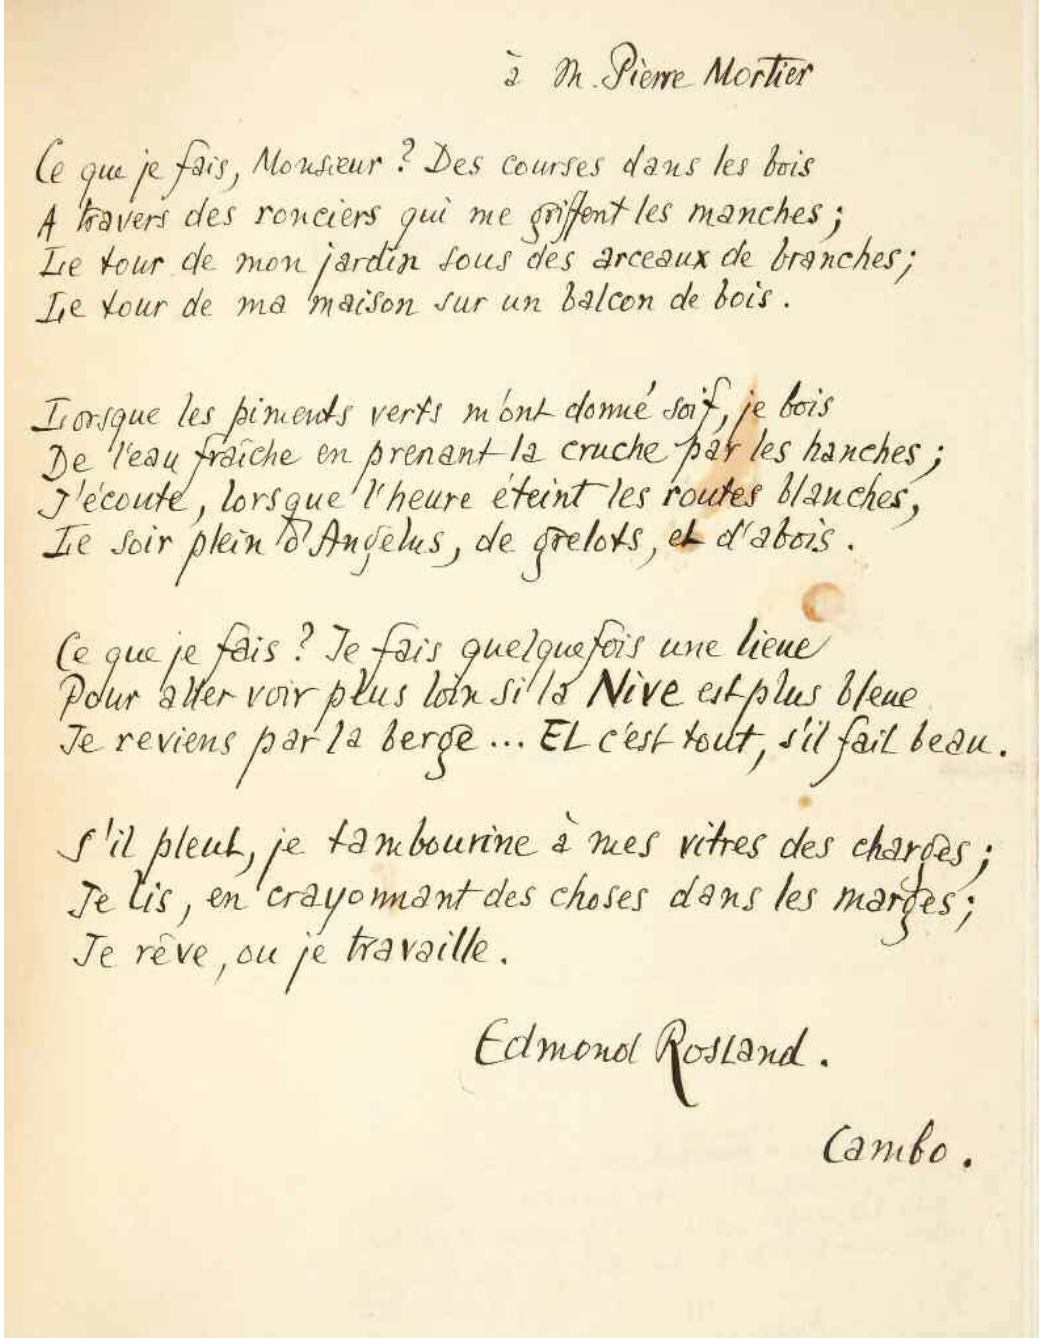 à M. Pierre Mortier
Ce que je fais, Monsieur ? Des courses dans les bois
A travers des ronciers qui me griffent les manches ;
Le tour de mon jardin sous des arceaux de branches ;
Le tour de ma maison sur un balcon de bois .
Lorsque les piments verts m'ont donné soif, je bois
De l'eau fraîche en prenant la cruche par les hanches ;
J'écoute, lorsque l'heure éteint les routes blanches,
Le soir plein d'Angélus, de grelots, et d'abois .
Ce que je fais ? Je fais quelquefois une lieue
Pour aller voir plus loin si la Nive est plus bleue
Je reviens par la berge ... Et c'est tout, s'il fait beau .
S'il pleut, je tambourine à mes vitres des charges ;
Je lis, en crayonnant des choses dans les marges ;
Je rêve, ou je travaille .
Edmond Rostand .
Cambo .